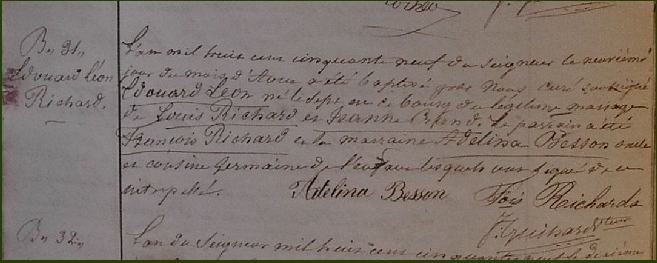 B. 31.
Edouard Léon
Richard.
L'an mil huit cent cinquante neuf du Seigneur le neuvième
jour du mois d'Aout a été baptisé par Nous Curé soussigné
Edouard Léon né le sept en ce bourg du légitime mariage
de Louis Richard et Jeanne Le parrain a été
François Richard et la marraine Adelina Besson oncle
et cousine germaine de l'enfant lesquels ont signé de ce
interpellé. Adelina Besson Fois Richard
J. Guihard
B. 32.
L'an du Seigneur mil huit cent cinquante neuf le dixième